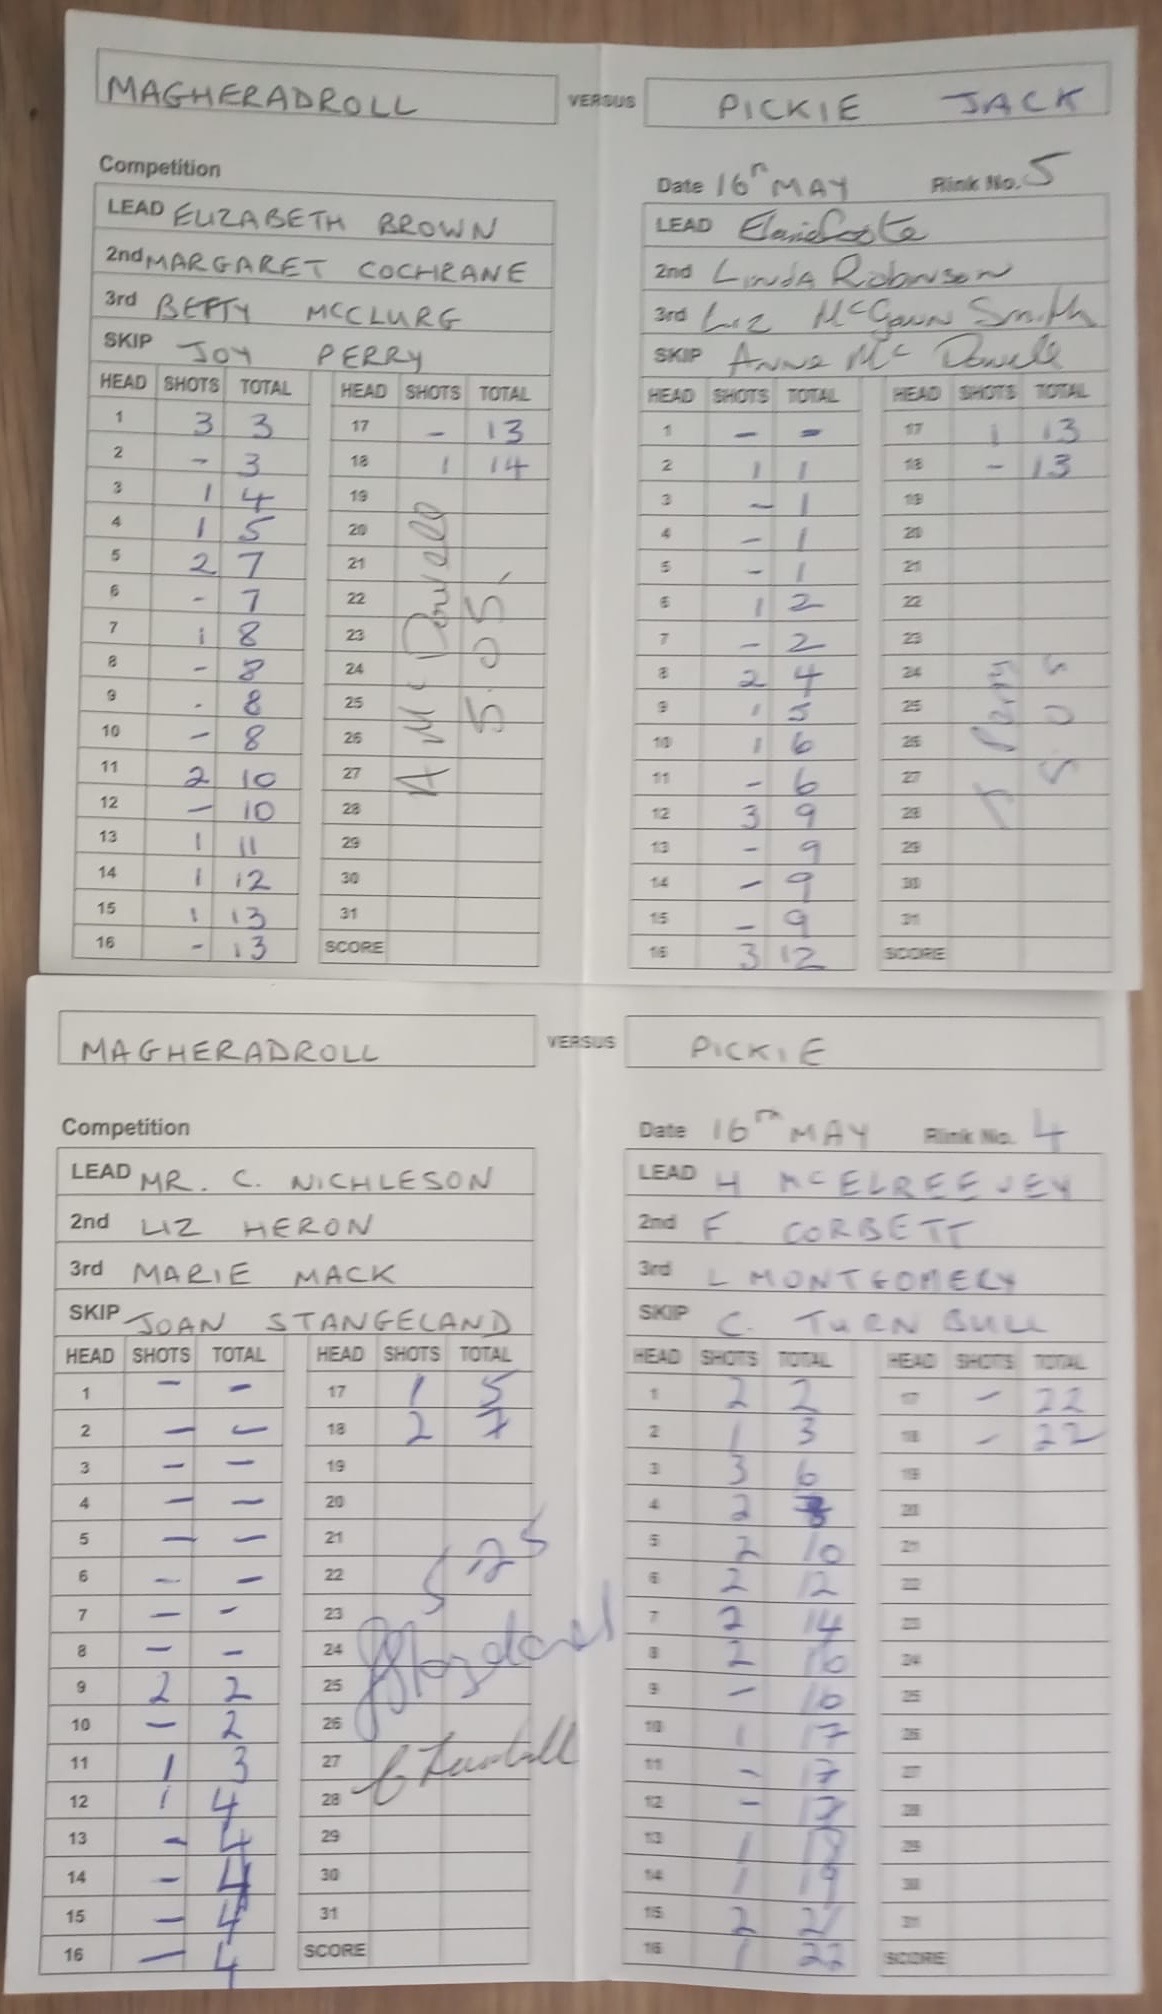 MAGHERADROLL VERSUS PICKIE JACK
Competition Date 16th MAY Rink No. 5
LEAD ELIZABETH BROWN LEAD
2nd MARGARET COCHRANE 2nd Linda Robinson
3rd BETTY MCCLURG 3rd Liz McGown Smith
SKIP JOY PERRY SKIP Anne Mc Dowell
HEAD SHOTS TOTAL HEAD SHOTS TOTAL HEAD SHOTS TOTAL HEAD SHOTS TOTAL
1 3 3 17 - 13 1 - - 17 1 13
2 - 3 18 1 14 2 1 1 18 - 13
3 1 4 19 3 - 1 19
4 1 5 20 4 - 1 20
5 2 7 21 5 - 1 21
6 - 7 22 6 1 2 22
7 1 8 23 7 - 2 23
8 - 8 24 8 2 4 24
9 - 8 25 9 1 5 25
10 - 8 26 10 1 6 26
11 2 10 27 11 - 6 27
12 - 10 28 12 3 9 28
13 1 11 29 13 - 9 29
14 1 12 30 14 - 9 30
15 1 13 31 15 - 9 31
16 - 13 SCORE 16 3 12 SCORE
A Mc Dowell
5.05
J Perry
5 05
MAGHERADROLL VERSUS PICKIE
Competition Date 16th MAY Rink No. 4
LEAD MR. C. NICHLESON LEAD H MCELREEVEY
2nd LIZ HERON 2nd F. CORBETT
3rd MARIE MACK 3rd L MONTGOMERY
SKIP JOAN STANGELAND SKIP C. TURNBULL
HEAD SHOTS TOTAL HEAD SHOTS TOTAL HEAD SHOTS TOTAL HEAD SHOTS TOTAL
1 - - 17 1 5 1 2 2 17 - 22
2 - - 18 2 7 2 1 3 18 - 22
3 - - 19 3 3 6 19
4 - - 20 4 2 8 20
5 - - 21 5 2 10 21
6 - - 22 6 2 12 22
7 - - 23 7 2 14 23
8 - - 24 8 2 16 24
9 2 2 25 9 - 16 25
10 - 2 26 10 1 17 26
11 1 3 27 11 - 17 27
12 1 4 28 12 - 17 28
13 - 4 29 13 1 18 29
14 - 4 30 14 1 19 30
15 - 4 31 15 2 21 31
16 - 4 SCORE 16 1 22 SCORE
C Turnbull